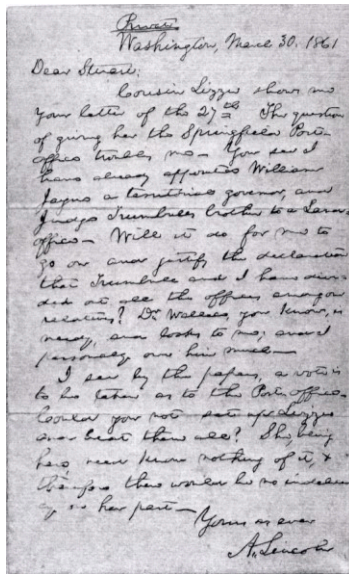 Private
Washington, March 30. 1861
Dear Stuart:
Cousin Lizzie shows me
your letter of the 27th. The question
of giving her the Springfield Post-
office troubles me. You see I
have already appointed William
Jayne a territorial governor, and
Judge Trumbull's brother to a Land-
office— Will it do for me to
go on and justify the declaration
that Trumbull and I have divi-
ded out all the offices among our
relatives? Dr. Wallace, you know, is
needy, and looks to me; and I
personally owe him much—
I see by the papers, a vote is
to be taken as to the Post-office.
Could you not set up Lizzie
and beat them all? She, being
here, need know nothing of it, &
therefore there would be no indelica-
cy on her part—
Yours as ever
A. Lincoln